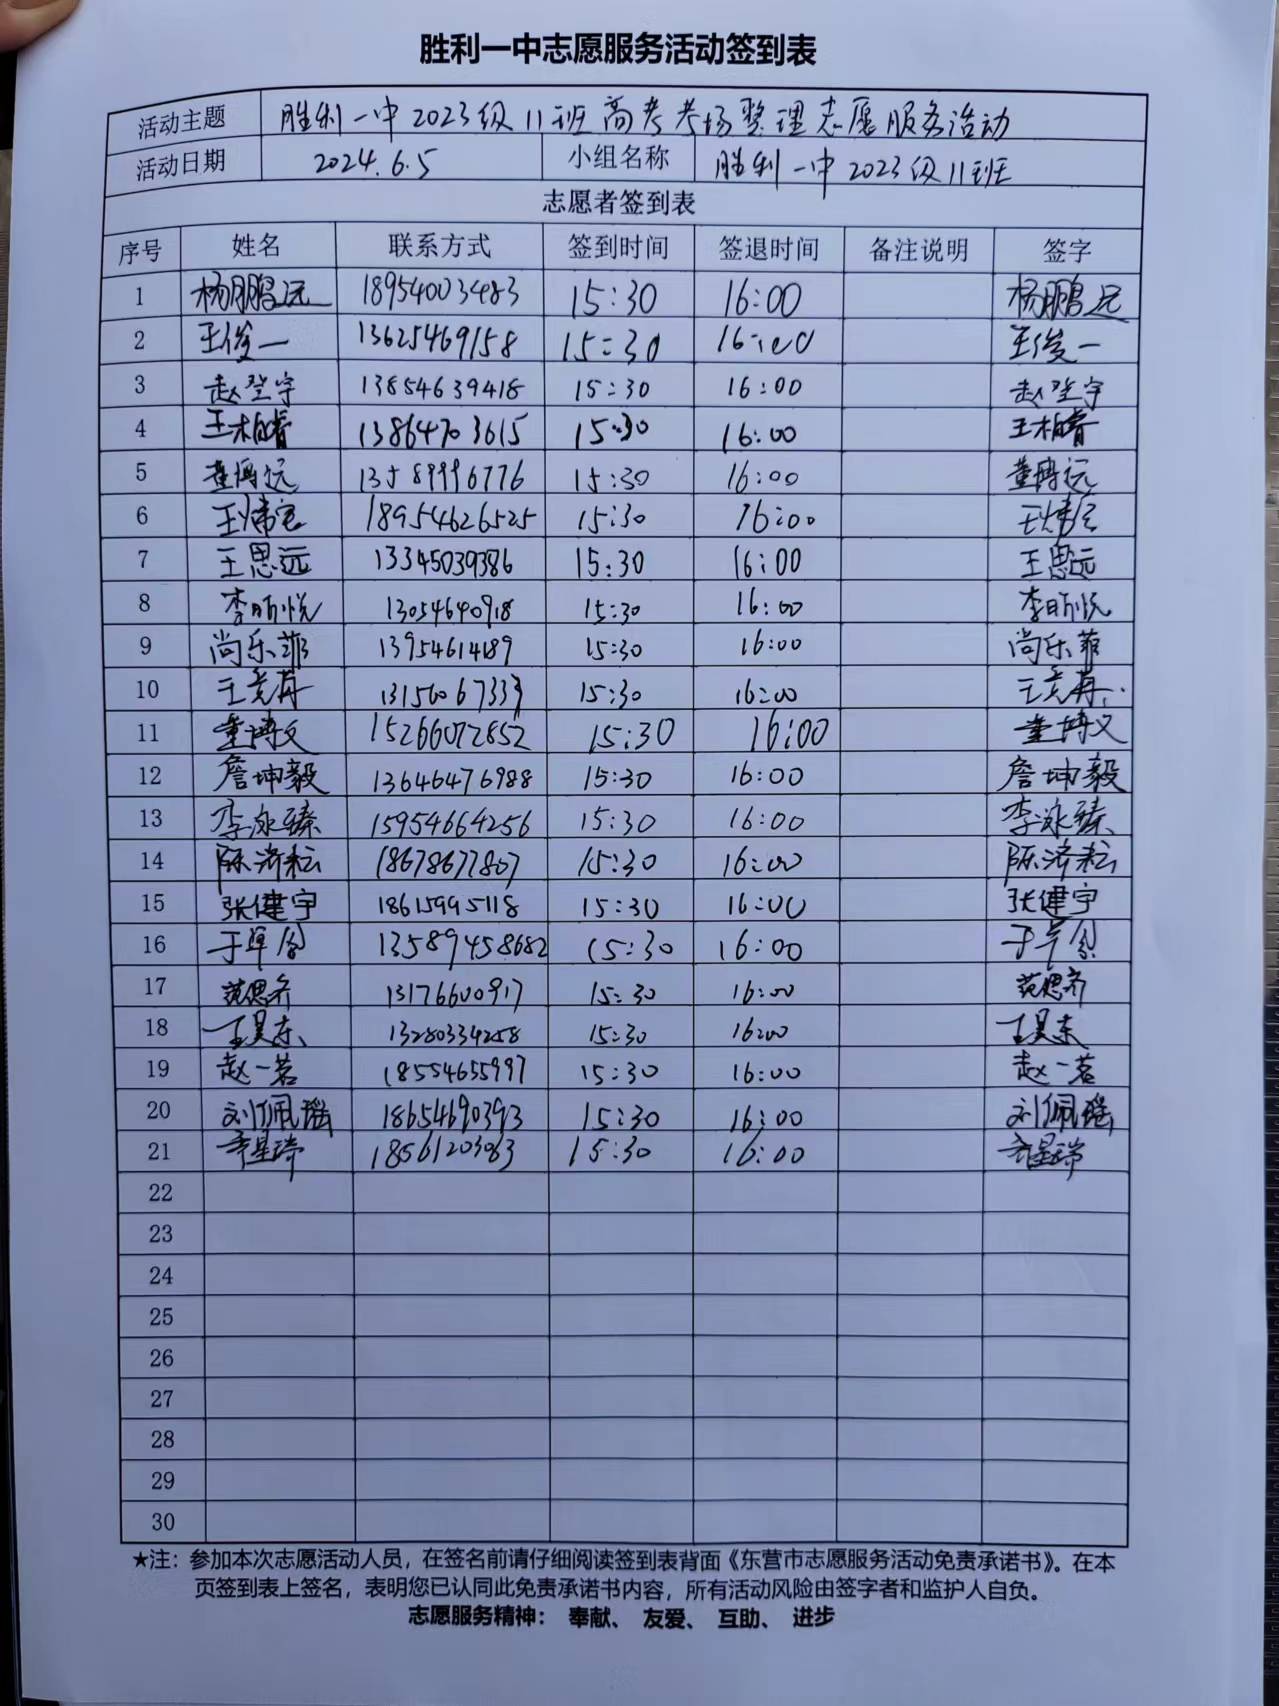 胜利一中志愿服务活动签到表
活动主题 胜利一中2023级11班高考考场整理志愿服务活动
活动日期 2024.6.5 小组名称 胜利一中2023级11班
志愿者签到表
序号 姓名 联系方式 签到时间 签退时间 备注说明 签字
1 杨鹏远 18954003483 15:30 16:00 杨鹏远
2 王俊一 13625469158 15:30 16:00 王俊一
3 赵堃宇 13854639418 15:30 16:00 赵堃宇
4 王柏睿 13864703615 15:30 16:00 王柏睿
5 董博远 13589996776 15:30 16:00 董博远
6 18954626525 15:30 16:00
7 王思远 13345039386 15:30 16:00 王思远
8 李昕悦 13054640918 15:30 16:00 李昕悦
9 尚乐菲 13954614189 15:30 16:00 尚乐菲
10 15:30 16:00
11 董博文 15266072852 15:30 16:00 董博文
12 詹坤毅 13646476988 15:30 16:00 詹坤毅
13 李泳臻 15954664256 15:30 16:00 李泳臻
14 陈济耘 18678677807 15:30 16:00 陈济耘
15 张健宇 18615995118 15:30 16:00 张健宇
16 13589458682 15:30 16:00
17 范思齐 13176600917 15:30 16:00 范思齐
18 王昊东 13280334258 15:30 16:00 王昊东
19 赵一茗 18554655997 15:30 16:00 赵一茗
20 刘佩瑶 18654690393 15:30 16:00 刘佩瑶
21 18561203063 15:30 16:00
22
23
24
25
26
27
28
29
30
★注：参加本次志愿活动人员，在签名前请仔细阅读签到表背面《东营市志愿服务活动免责承诺书》。在本
页签到表上签名，表明您已认同此免责承诺书内容，所有活动风险由签字者和监护人自负。
志愿服务精神： 奉献、 友爱、 互助、 进步